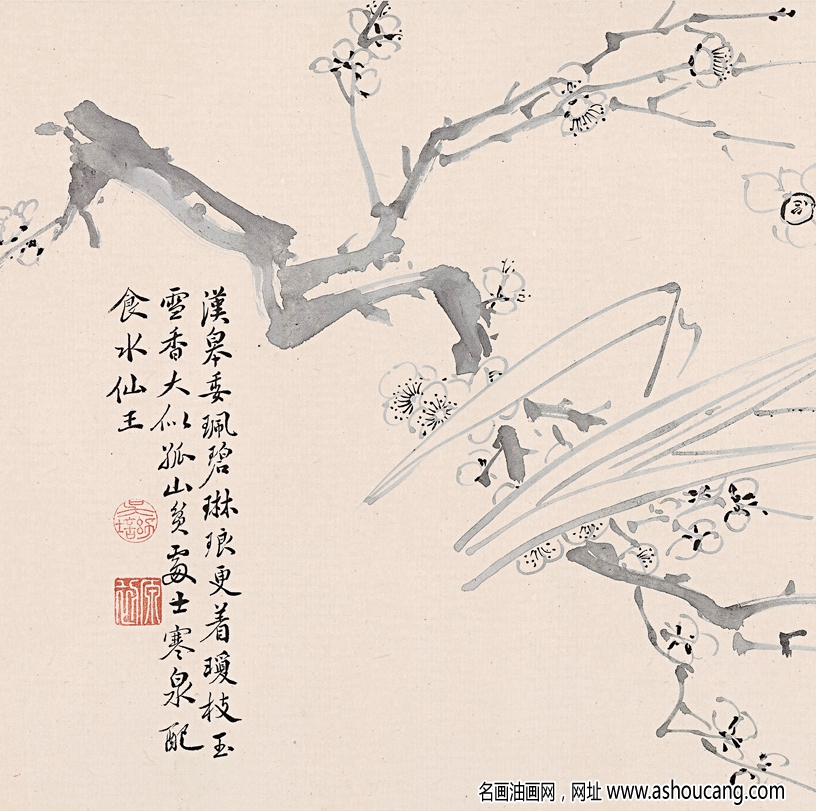 漢皋委珮碧琳琅更着瓊枝玉
雪香大似孤山貧處士寒泉配
食水仙王
名画油画网，网址 www.ashoucang.com